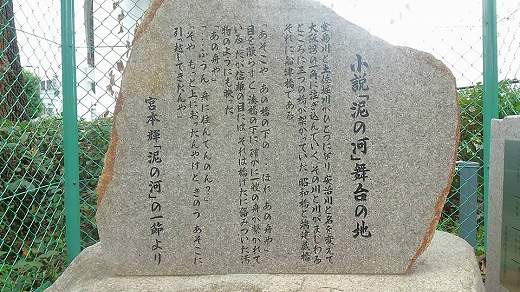 小説「泥の河」舞台の地
堂島川と土佐堀川がひとつになり、安治川と名を変えて
大阪湾の一角に注ぎ込んでいく。その川と川がまじわる
ところに三つの橋が架かっていた。昭和橋と端建蔵橋、
それに船津橋である。
「あそこや、あの橋の下の……ほれ、あの舟や」
目を凝らすと、湊橋の下に、確かに一艘の舟が繋がれて
いる。だが信雄の目には、それは橋げたに絡みついた汚
物のようにも映った。
「あの舟や」
「……ふうん、舟に住んでんのん?」
「そや、もっと上におったんやけど、きのうあそこに
引っ越してきたんや」
宮本 輝「泥の河」の一節より